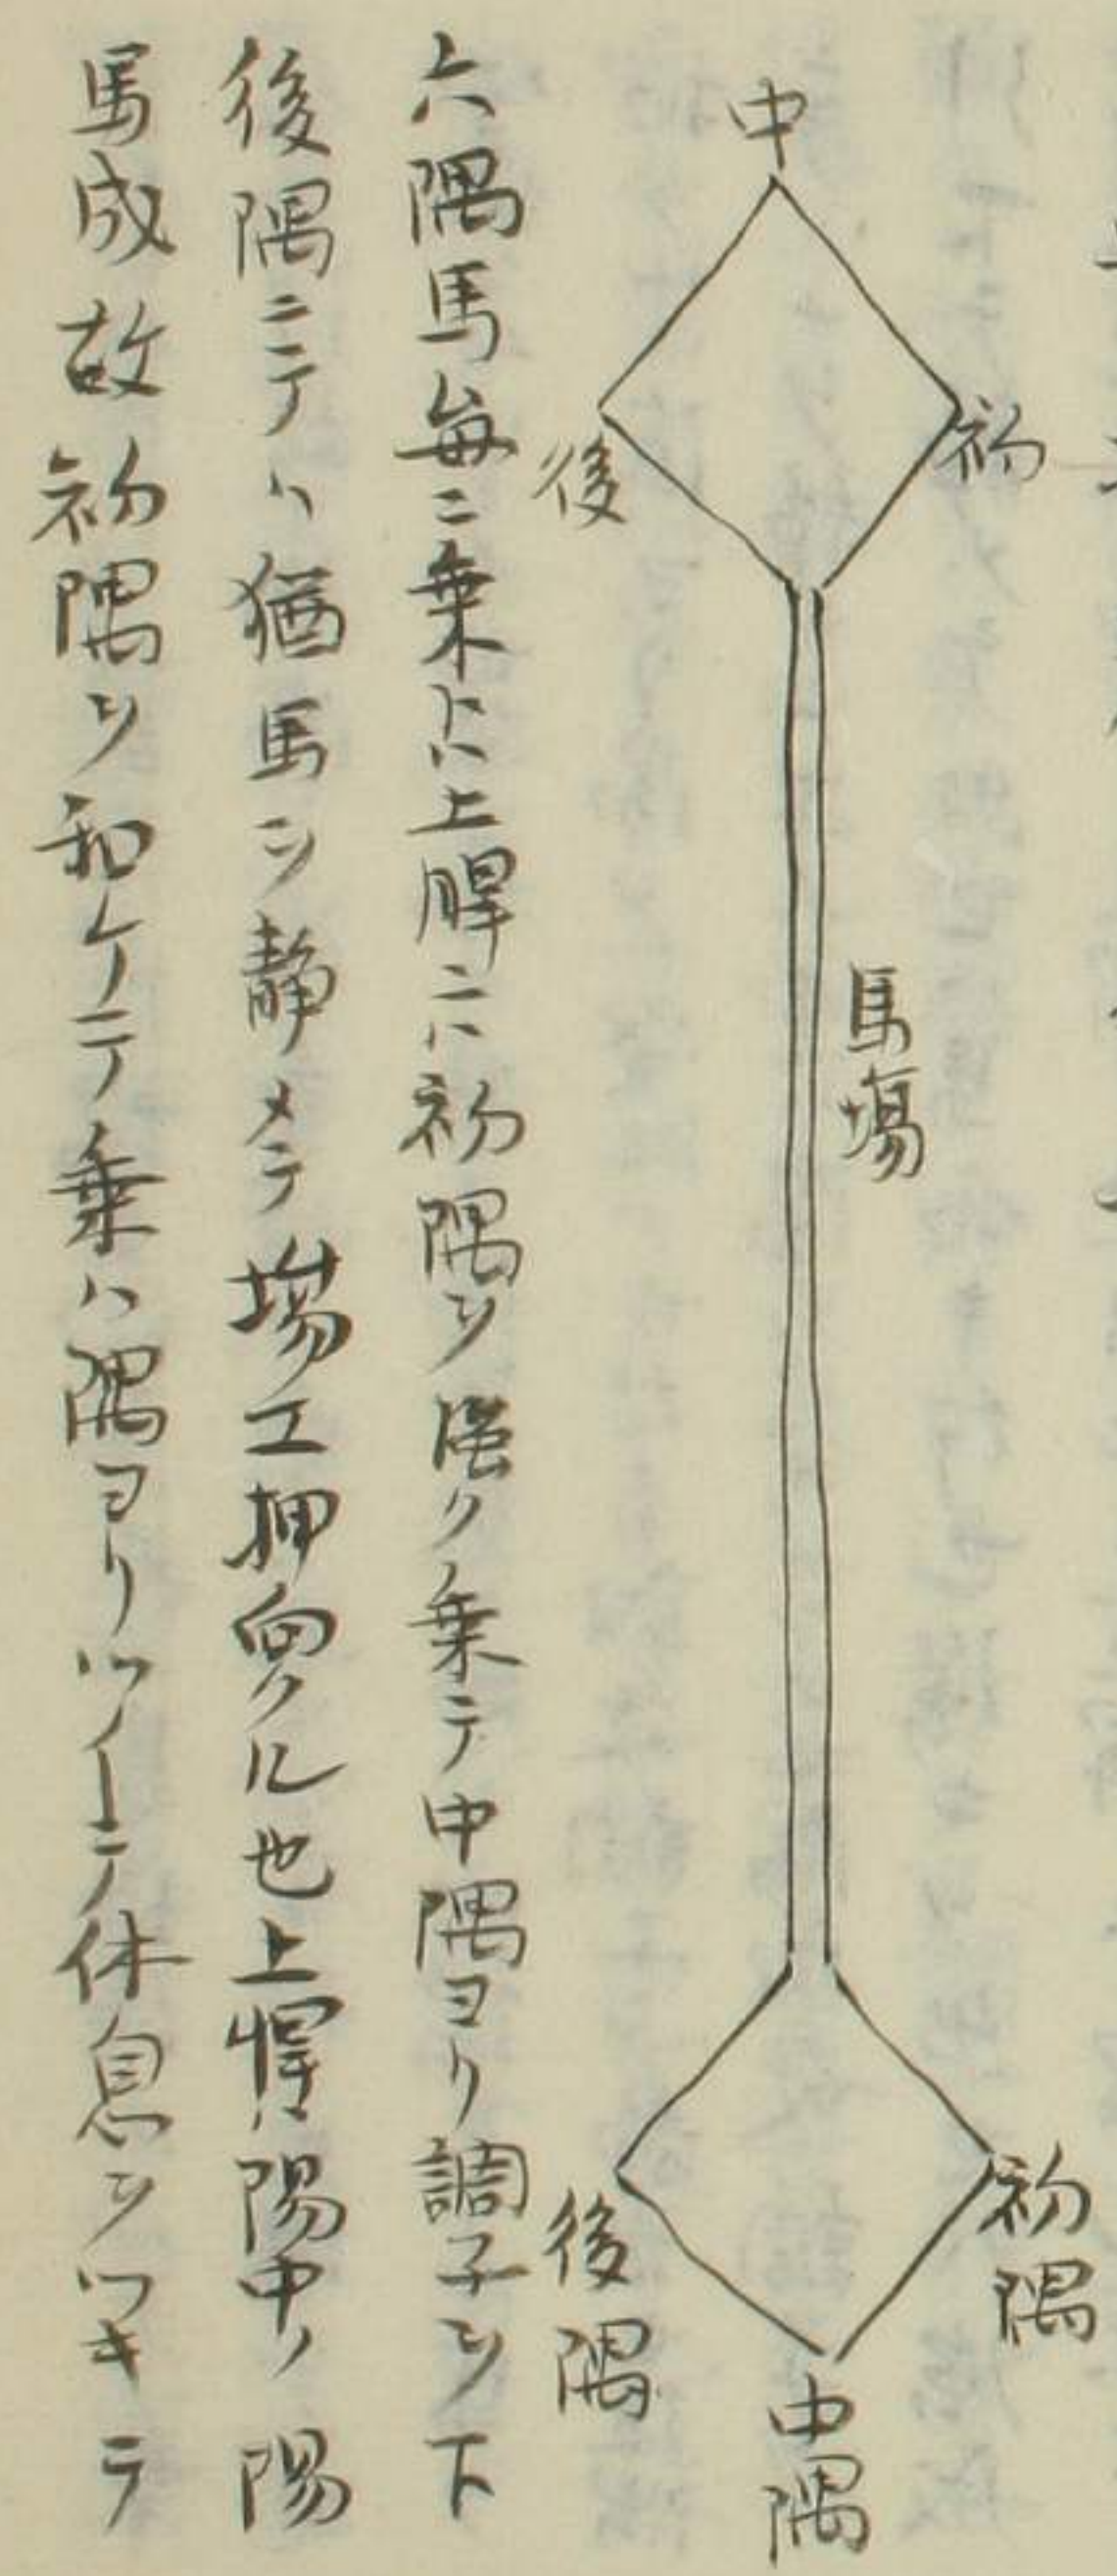 中
初
後
馬場
初隅
後隅
中隅
六隅馬毎ニ乗トハ上駻ニハ初隅ヲ強ク乗テ中隅ヨリ調子ヲ下
後隅ニテハ猶馬ヲ静メテ場エ押向クル也上悍ハ陽中ノ陽
馬成故初隅ヲ和ケテ乗ハ隅ヨリツイテ休息ヲツキテ